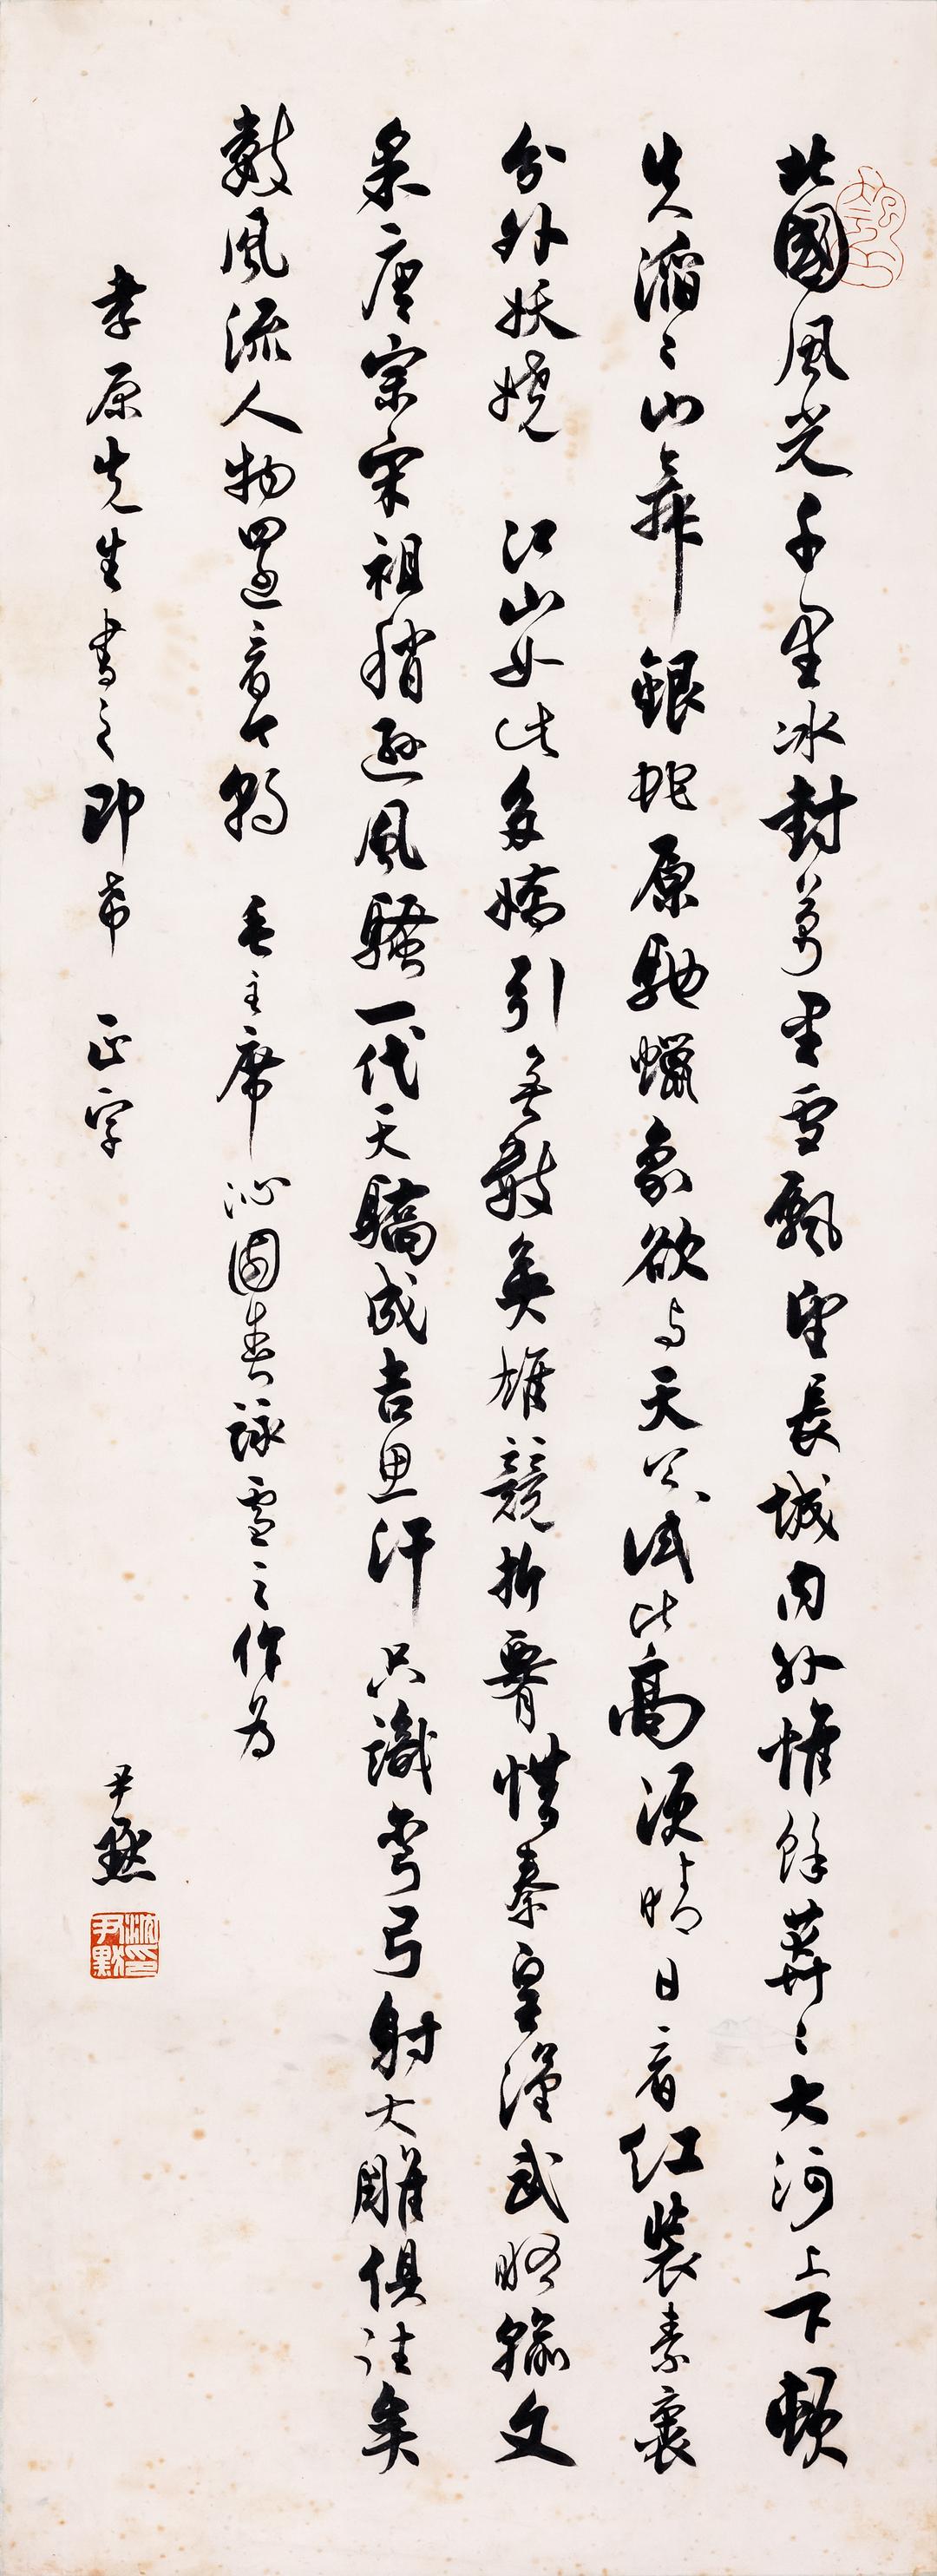 北國風光千里冰封萬里雪飄望長城內外惟餘莽〻大河上下頓
失滔〻山舞銀蛇原馳蠟象欲与天公試比高須晴日看紅裝素裹
分外妖嬈 江山如此多嬌引無數英雄競折腰惜秦皇漢武略輸文
采唐宗宋祖稍遜風騷一代天驕成吉思汗只識彎弓射大雕俱往矣
數風流人物還看今朝 毛主席沁園春詠雪之作為
孝原先生書之即希 正字
尹默
沈尹默印